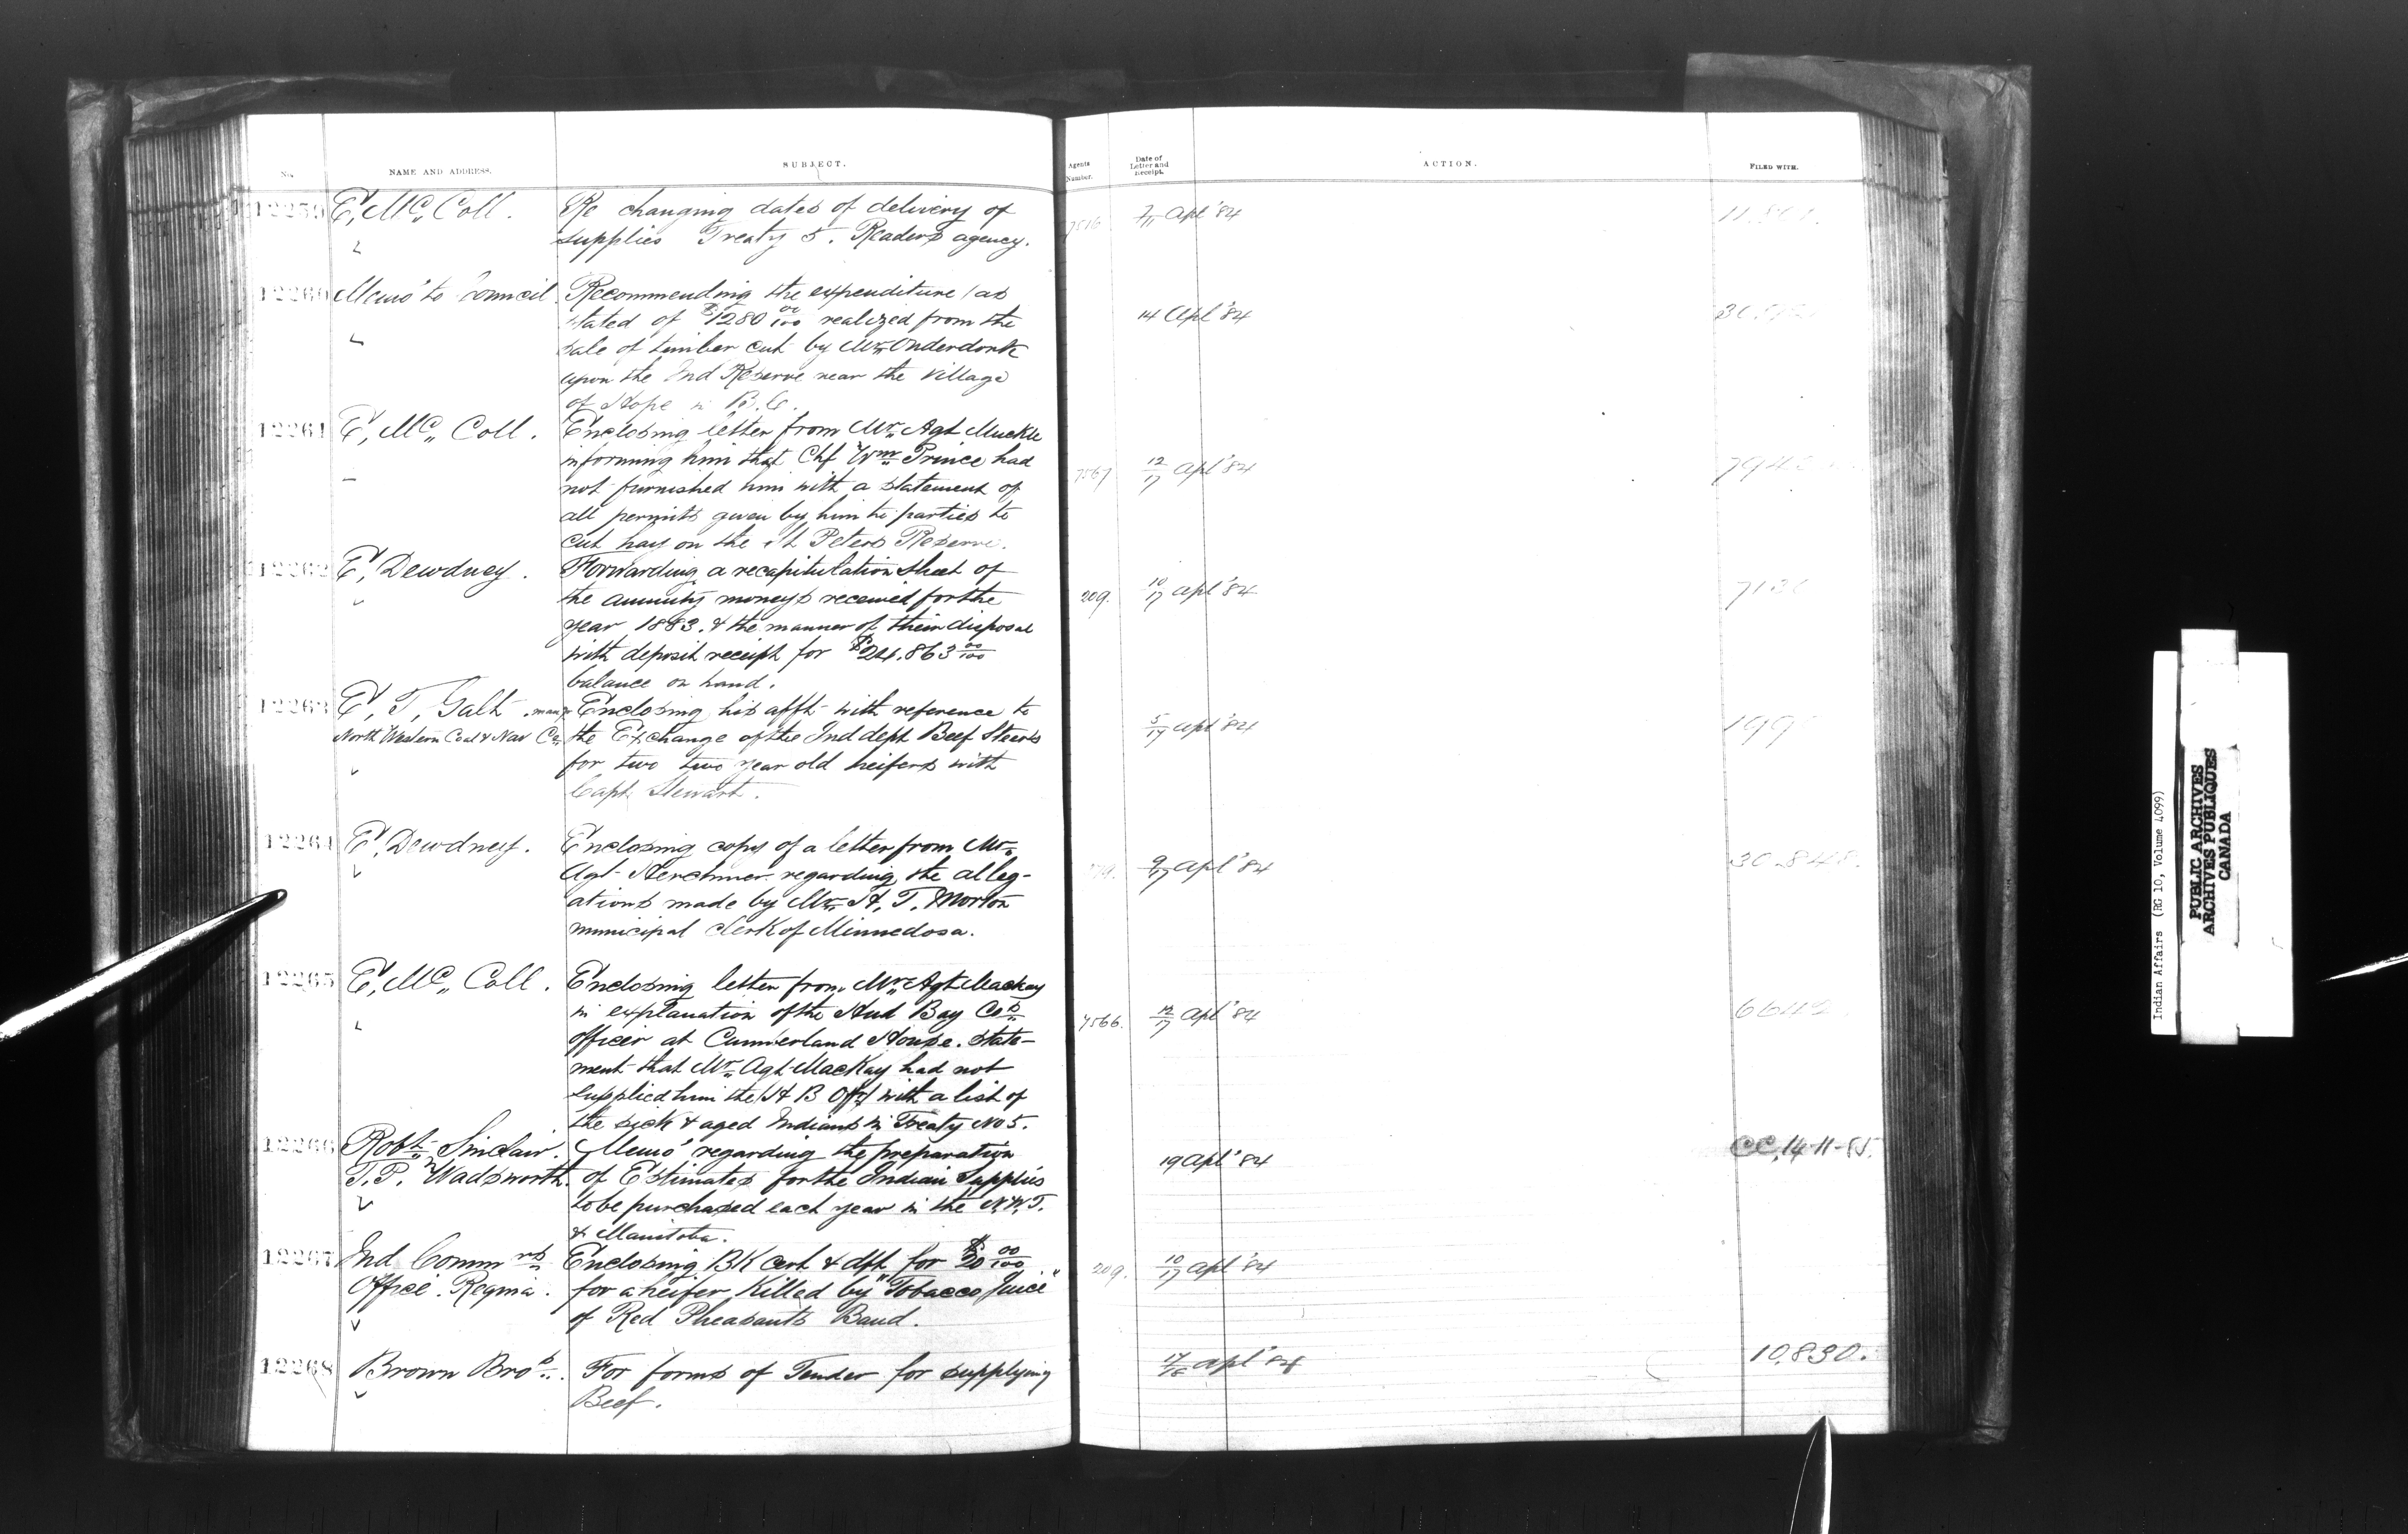 No.
NAME AND ADDRESS.
SUBJECT.
Agents Number.
Date of Letter and Receipt.
ACTION.
FILED WITH.
12259 E, Mc,, Coll. Re changing dates of delivery of
supplies Treaty 5. Readers agency.
7/11 Apl '84
12260 Memo' to Council Recommending the expenditure (as
stated of $1280 00/100 realized from the
sale of timber cut by Mr,, Onderdonk
upon the Ind Reserve near the Village
of Hope in B.C.
14 Apl '84
12261 E, Mc,, Coll. Enclosing letter from Mr,, Agt Muckle
informing him that Chf Wm,, Prince had
not furnished him with a statement of
all permits given by him to parties to
cut hay on the St Peters Reserve.
7567 12/17 Apl '84
12262 E, Dewdney. Forwarding a recapitulation sheet of
the annuity moneys received for the
year 1883. & the manner of their disposal
with deposit receipt for $24.863 00/100
balance on hand.
209. 10/17 Apl '84
12263 E, T, Galt. mang
North Western Coal & Nav Co,,
Enclosing his afft with reference to
the Exchange of the Ind dept Beef Steers
for two two year old heifers with
Capt Stewart.
5/17 Apl '84
12264 E, Dewdney. Enclosing copy of a letter from Mr,,
Agt Herchmer regarding the alleg-
ations made by Mr,, H, T. Morton
municipal clerk of Minnedosa.
9/17 Apl '84
30.848.
12265 E, Mc,, Coll. Enclosing letter from Mr,, Agt Mackay
in explanation of the Hud Bay Cos,,
officer at Cumberland House. State-
ment that Mr,, Agt MacKay had not
supplied him the (H B Offr) with a list of
the sick & aged Indians in Treaty No 5.
7566. 12/17 Apl '84
12266 Robt,, Sinclair.
T.P. Wadsworth.
Memo' regarding the preparation
of Estimates for the Indian Supplies
to be purchased each year in the N.W.T.
& Manitoba.
19 Apl' 84
CC. 14-11-85.
12267 Ind Commrs,,
Office. Regina.
Enclosing BK cert & dft for $20 00/100
for a heifer killed by "Tobacco Juice"
of Red Pheasants Band.
209. 10/17 Apl '84
12268 Brown Bros,,. For forms of Tender for supplying
Beef.
17/18 Apl '84
10,830.
Indian Affairs (RG 10, Volume 4099)
PUBLIC ARCHIVES
ARCHIVES PUBLIQUES
CANADA